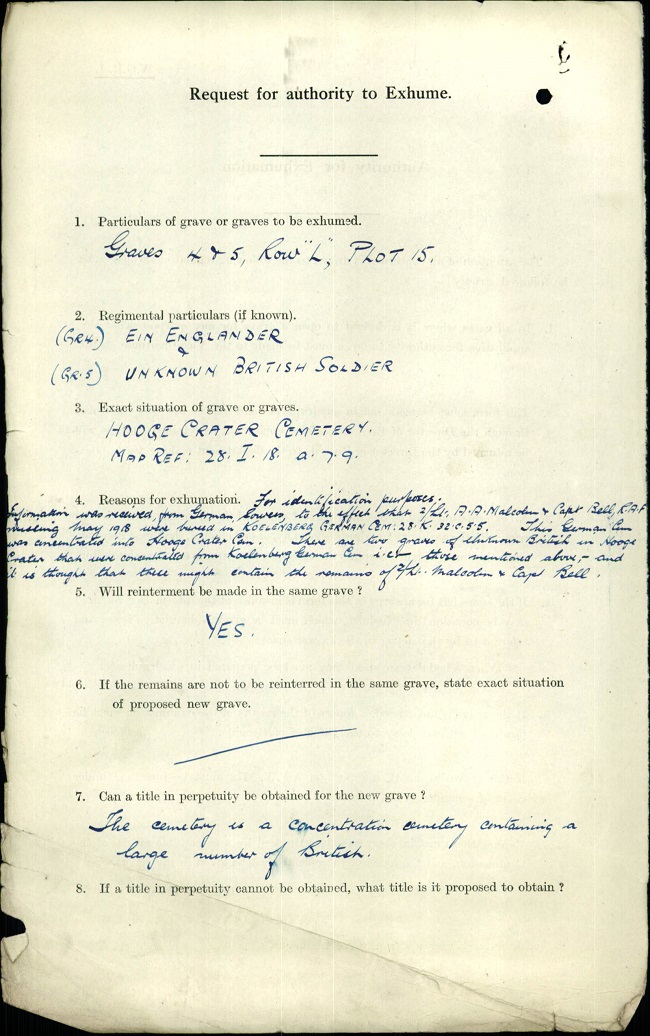 Request for authority to Exhume.
1. Particulars of grave or graves to be exhumed.
Graves 4 & 5, Row "L", PLOT 15.
2. Regimental particulars (if known).
(GR4.) EIN ENGLANDER
&
(GR.5) UNKNOWN BRITISH SOLDIER
3. Exact situation of grave or graves.
HOOGE CRATER CEMETERY.
MAP REF: 28. I. 18. a. 7. 9.
4. Reasons for exhumation. For identification purposes.
Information was received from German Sources to the effect that 2/Lt. A.A. Malcolm & Capt Bell, R.A.F.
missing May 1918 were buried in KOELENBERG GERMAN CEM: 28. K. 32. c. 5. 5. This German Cem
was concentrated into Hooge Crater Cem. There are two graves of Unknown British in Hooge
Crater that were concentrated from Koelenberg German Cem i.e. those mentioned above, - and
it is thought that these might contain the remains of 2/Lt. Malcolm & Capt Bell.
5. Will reinterment be made in the same grave ?
YES.
6. If the remains are not to be reinterred in the same grave, state exact situation
of proposed new grave.
7. Can a title in perpetuity be obtained for the new grave ?
The cemetery is a concentration cemetery containing a
large number of British.
8. If a title in perpetuity cannot be obtained, what title is it proposed to obtain ?